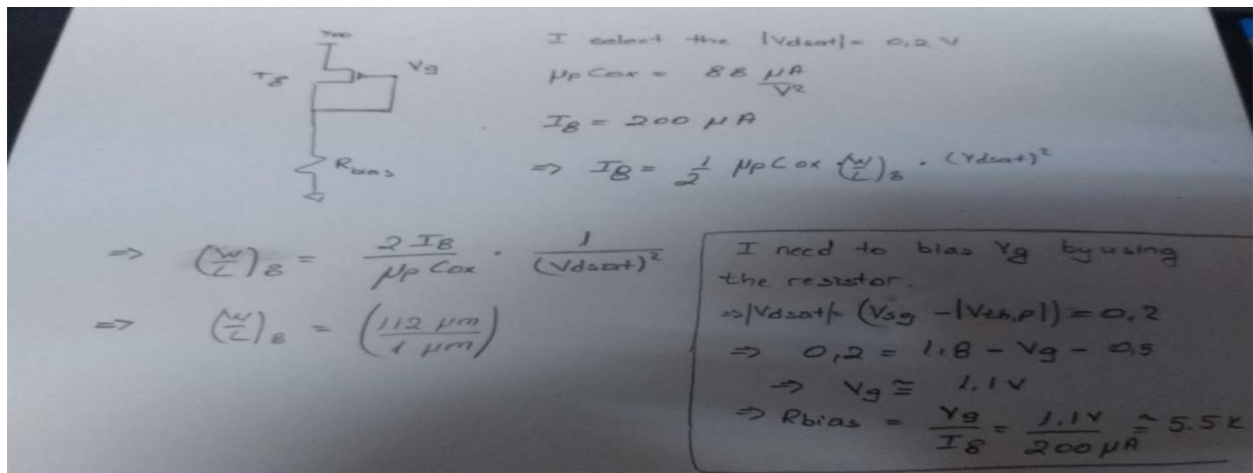 VDD
I select the |Vdsat| = 0,2 V
I8
Vg
μpCox = 88 μA/V²
I8 = 200 μA
Rbias
=> I8 = 1/2 μpCox (W/L)8 · (Vdsat)²
=> (W/L)8 = 2 I8/μpCox · 1/(Vdsat)²
=> (W/L)8 = (112 μm/1 μm)
I need to bias Vg by using
the resistor.
=> |Vdsat| = (Vsg - |Vth,p|) = 0,2
=> 0,2 = 1.8 - Vg - 0,5
=> Vg ≅ 1.1V
=> Rbias = Vg/I8 = 1.1V/200 μA ≅ 5.5K